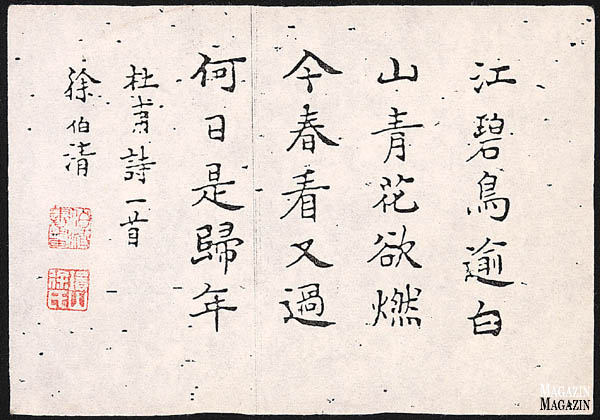 江碧鳥逾白
山青花欲燃
今春看又過
何日是歸年
杜甫詩一首
徐伯清
MAGAZIN
MAGAZIN